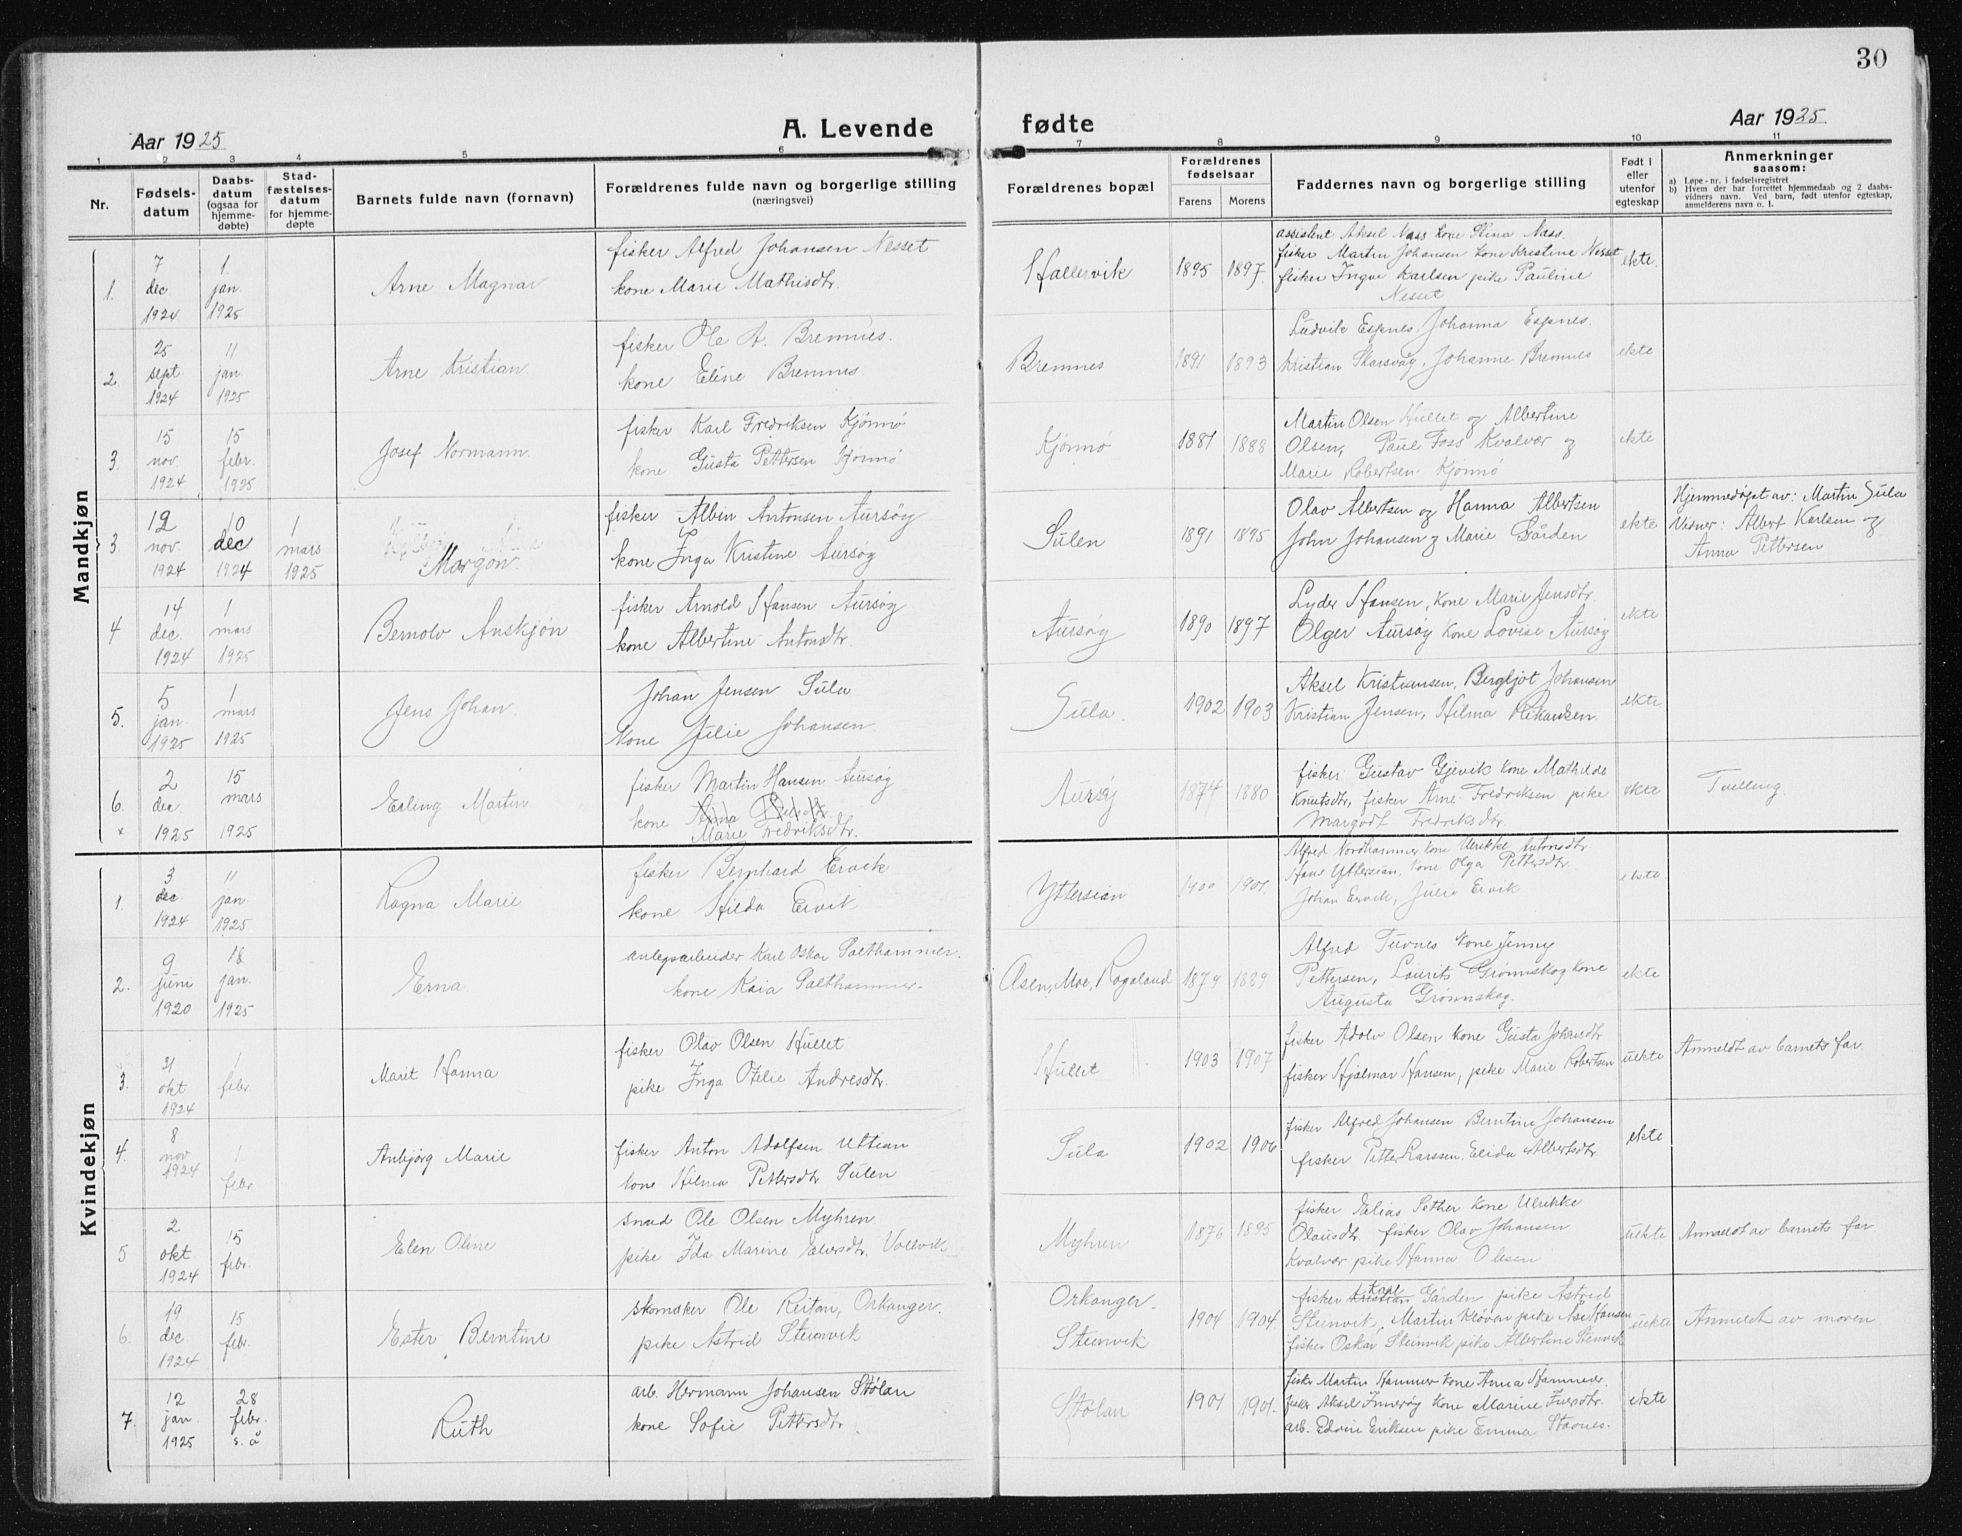 30
Aar 1925
A. Levende
fødte
Aar 1925
1 2 3 4 5 6 7 8 9 10 11
Nr.
Fødsels-
datum
Daabs-
datum
(ogsaa for
hjemme-
døbte)
Stad-
fæstelses-
datum
for hjemme-
døpte
Barnets fulde navn (fornavn)
Forældrenes fulde navn og borgerlige stilling
(næringsvei)
Forældrenes bopæl
Forældrenes
fødselsaar
Farens
Morens
Faddernes navn og borgerlige stilling
Født i
eller
utenfor
egteskap
Anmerkninger
saasom:
a) Løpe-nr. i fødselsregistret
b) Hvem der har forrettet hjemmedaab og 2 daabs-
vidners navn. Ved barn, født utenfor egteskap,
anmelderens navn o. l.
Mandkjøn
1.
7
dec
1924
1.
jan
1925
Arne Magnar
fisker Alfred Johansen Nesset
kone Marie Mathisdtr.
Hallervik
1895
1897.
assistent Aksel Næss kone Stina Næss.
fisker Martin Johansen kone Kristine Nesset
fisker Ingvar Karlsen pike Pauline
Nesset
ekte.
2.
25
sept.
1924
11
jan.
1925
Arne Kristian
fisker Ole A. Bremnes.
kone Eline Bremnes.
Bremnes
1891
1893
Ludvik Espnes, Johanna Espnes.
Kristian Skarsvåg, Johanne Bremnes
ekte
3.
15
nov.
1924
15
febr.
1925
Josef Normann.
fisker Karl Fredriksen Kjønnø
kone Gusta Pettersen Kjønnø
Kjønnø
1881
1888
Martin Olsen Hullet og Albertine
Olsen, Paul Foss Kvalvær og
Marie Robertsen Kjønnø
ekte
3.
12
nov.
1924
10
dec
1924
1
mars
1925
Margon.
fisker Albin Antonsen Aursøy
kone Inga Kristine Aursøy
Sulen
1891
1895
Olav Albertsen og Hanna Albertsen
John Johansen og Marie Gården
ekte
Hjemmedøpt av: Martin Sula
Vidner: Albert Karlsen og
Anna Pettersen
4
14
dec.
1924
1
mars
1925
Bernolv Anskjøn
fisker Arnold Hansen Aursøy
kone Albertine Antonsdtr.
Aursøy
1890
1897
Lyder Hansen, kone Marie Jensdtr.
Olger Aursøy kone Lovise Aursøy
ekte
5.
5
jan.
1925
1
mars
1925
Jens Johan.
Johan Jensen Sula
kone Julie Johansen
Sula.
1902
1903
Aksel Kristiansen, Bergljot Johansen
Kristian Jensen, Hilma
ekte
6.
x
2
dec
1925
15
mars
1925
Erling Martin
fisker Martin Hansen Aursøy
kone Anna
Marie Fredriksdtr.
Aursøy
1874
1880
fisker Gustav Gjevik kone Mathilde
Knutsdtr, fisker Arne Fredriksen pike
Margodt Fredriksdtr.
ekte
Tvilling.
Kvindekjøn
1.
3
dec.
1924
11
jan.
1925.
Ragna Marie
fisker Bernhard Ervik
kone Hilda Ervik
Yttersian
1900
1901
Alfred Nordhammer kone Ulrikke Antonsdtr
Hans Yttersian, kone Olga Pettersdtr
Johan Ervik, Julie Ervik
ekte
2.
9
juni
1920
18
jan.
1925
Erna.
anlegsarbeider Karl Oskar Salthammer.
kone Kaia Salthammer.
Olsen, Moe, Rogaland
1879
1889
Alfred Tuvnes kone Jenny
Pettersen, Laurits Grønnskog kone
Augusta Grønnskog.
ekte
3.
31
okt
1924
1
febr.
Marit Hanna
fisker Olav Olsen Hullet
pike Inga Otelie Andresdtr.
Hullet
1903
1907
fisker Adolv Olsen kone Gusta Johansdtr
fisker Hjalmar Hansen, pike Marie Robertsen
uekte
Anmeldt av barnets far
4.
8
nov
1924
1
febr
Anbjørg Marie
fisker Anton Adolfsen Uttian
kone Hilma Pettersdtr Sulen
Sula
1902
1906
fisker Alfred Johansen Berntine Johansen
fisker Petter Larssen, Elida Albertsdtr.
ekte
5
2
okt
1924
15
febr.
Elen Oline
smed Ole Olsen Myhren.
pike Ida Marine Edvardsdtr. Vollvik
Myhren
1876
1895
fisker Elias Sether kone Ulrikke
Olausdtr. fisker Olav Johansen
Kvalvær pike Hanna Olsen
uekte
Anmeldt av barnets far
6.
19
dec.
1924
15
febr.
Ester Berntine
skomaker Ole Reitan, Orkanger.
pike Astrid Steinvik
Orkanger.
Steinvik
1904
1904
fisker Kristian Karl Gården pike Astrid
Steinvik, Martin Kløven pike Åse Hansen
fisker Oskar Steinvik pike Albertine Steinvik
uekte
Anmeldt av moren
7.
12
jan.
1925
28
febr.
s. å
Ruth
arb. Hermann Johansen Stølan
kone Sofie Pettersdtr.
Stølan
1901
1901.
fisker Martin Hammer kone Anna Hammer.
fisker Aksel Innerøy kone Marine Iversdtr
arb. Edvin Eriksen pike Emma Stavnes.
ekte